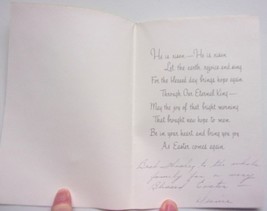 He is risen — He is risen
Let the earth rejoice and sing
For the blessed day brings hope again
Through Our Eternal King —
May the joy of that bright morning
That brought new hope to men
Be in your heart and bring you joy
As Easter comes again.
to the whole
family for a very
Blessed Easter